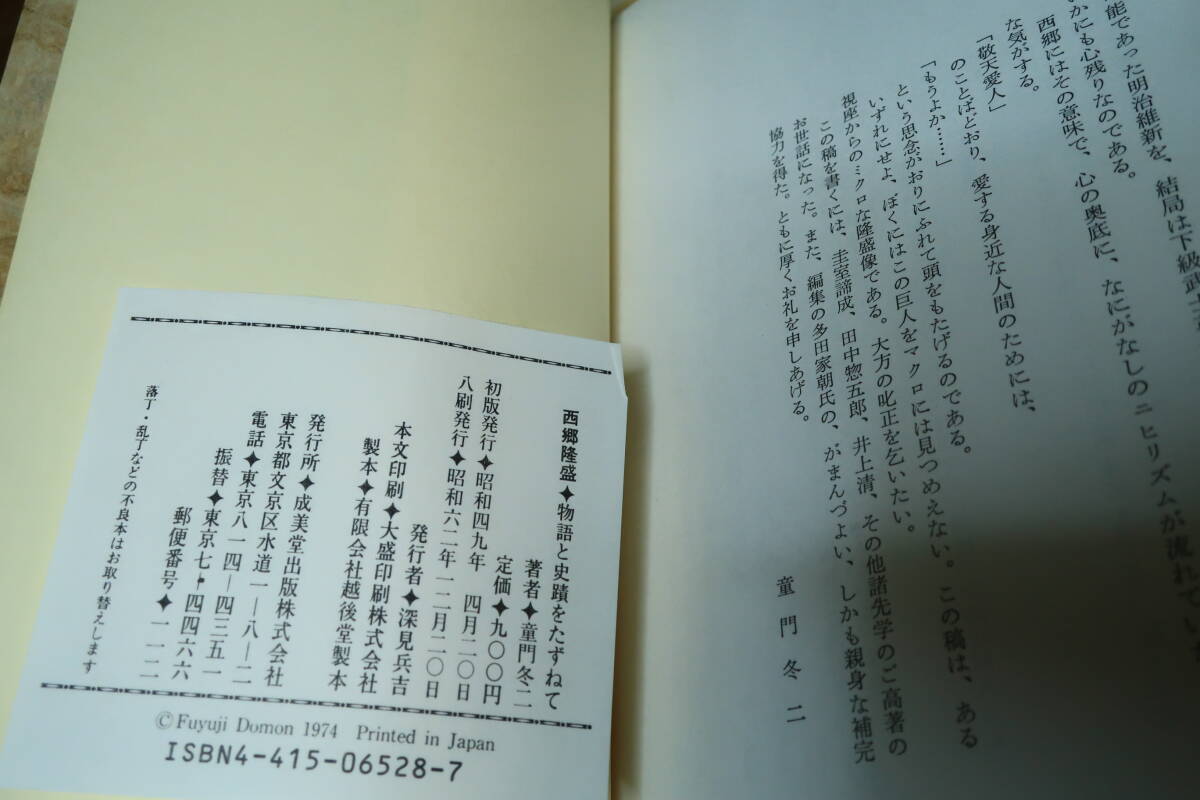 能であった明治維新を、結局は下級武士
かにも心残りなのである。
西郷にはその意味で、心の奥底に、なにがなしのニヒリズムが流れてい
な気がする。
「敬天愛人」
のことばどおり、愛する身近な人間のためには、
「もうよか……」
という思念がおりにふれて頭をもたげるのである。
いずれにせよ、ぼくにはこの巨人をマクロには見つめえない。この稿は、ある
視座からのミクロな隆盛像である。大方の叱正を乞いたい。
この稿を書くには、圭室諦成、田中惣五郎、井上清、その他諸先学のご高著の
お世話になった。また、編集の多田家朝氏の、がまんづよい、しかも親身な補完
協力を得た。ともに厚くお礼を申しあげる。
童門冬二
西郷隆盛✦物語と史蹟をたずねて
著者✦童門冬二
定価✦九〇〇円
初版発行✦昭和四九年 四月二〇日
八刷発行✦昭和六二年一二月二〇日
発行者✦深見兵吉
本文印刷✦大盛印刷株式会社
製本✦有限会社越後堂製本
発行所✦成美堂出版株式会社
東京都文京区水道一―八―二
電話✦東京八一四―四三五一
振替✦東京七―四四六六
郵便番号✦一一二
落丁・乱丁などの不良本はお取り替えします
©Fuyuji Domon 1974 Printed in Japan
ISBN4-415-06528-7